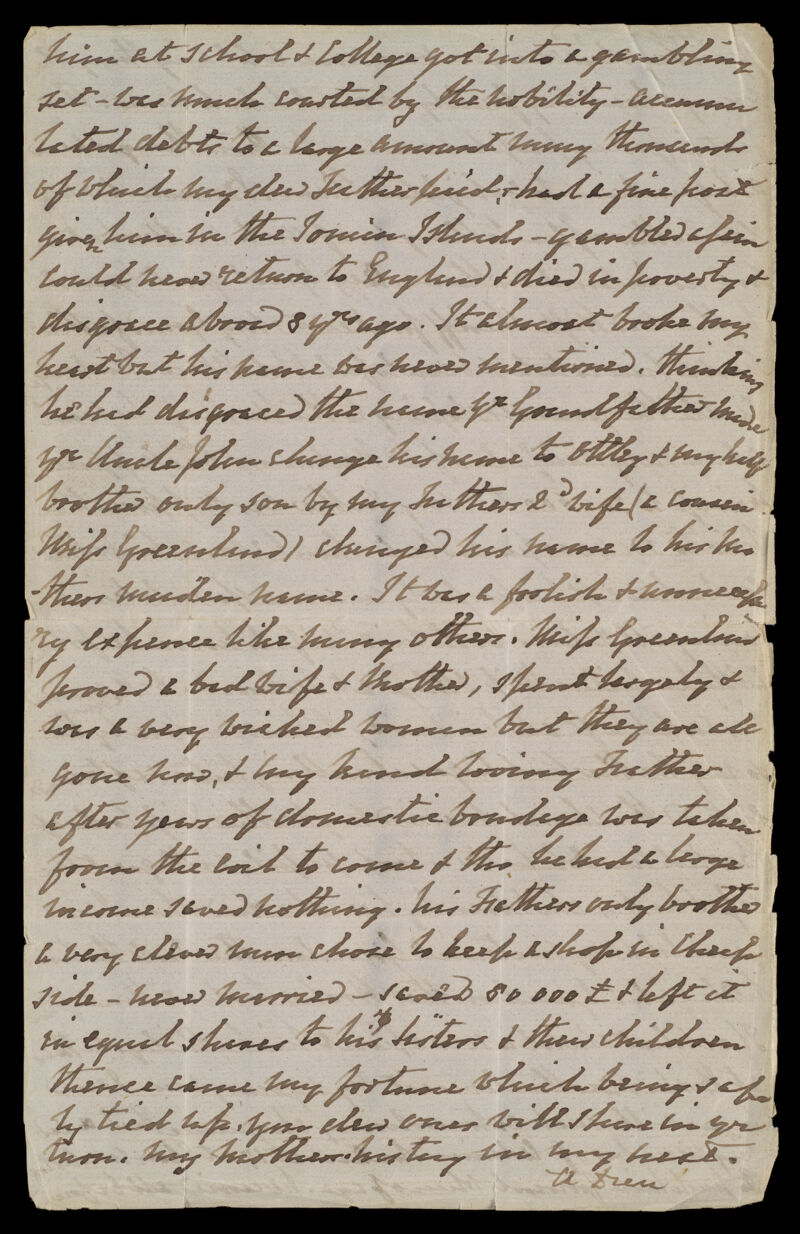 him at school & College got into a gambling
set - was much courted by the nobility - accumu
lated debts to a large amount many thousands
of which my dear Father paid, & had a fine post
given him in the Ionian Islands - gambled again
could never return to England & died in poverty &
disgrace abroad 8 yrs ago. It almost broke my
heart but his name was never mentioned. thinking
he had disgraced the name yr Grandfather made
yr Uncle John change his name to Ottley & my half
brother only son by my Fathers 2d wife (a cousin
Miss Greenland) changed his name to his mo
-thers maiden name. It was a foolish & unnecessa
ry expence like many others. Miss Greenland
proved a bad wife & Mother, spent largely &
was a very wicked woman but they are all
gone now, & my kind loving Father
after years of domestic bondage was taken
from the evil to come & tho he had a large
income saved nothing. his Fathers only brother
a very clever man chose to keep a shop in Cheap
side - never married - saved 80 000 £ & left it
in equal shares to his sisters & their children
thence came my fortune which being safe
ly tied up, you dear ones will share in yr
turn. My mothers history in my next.